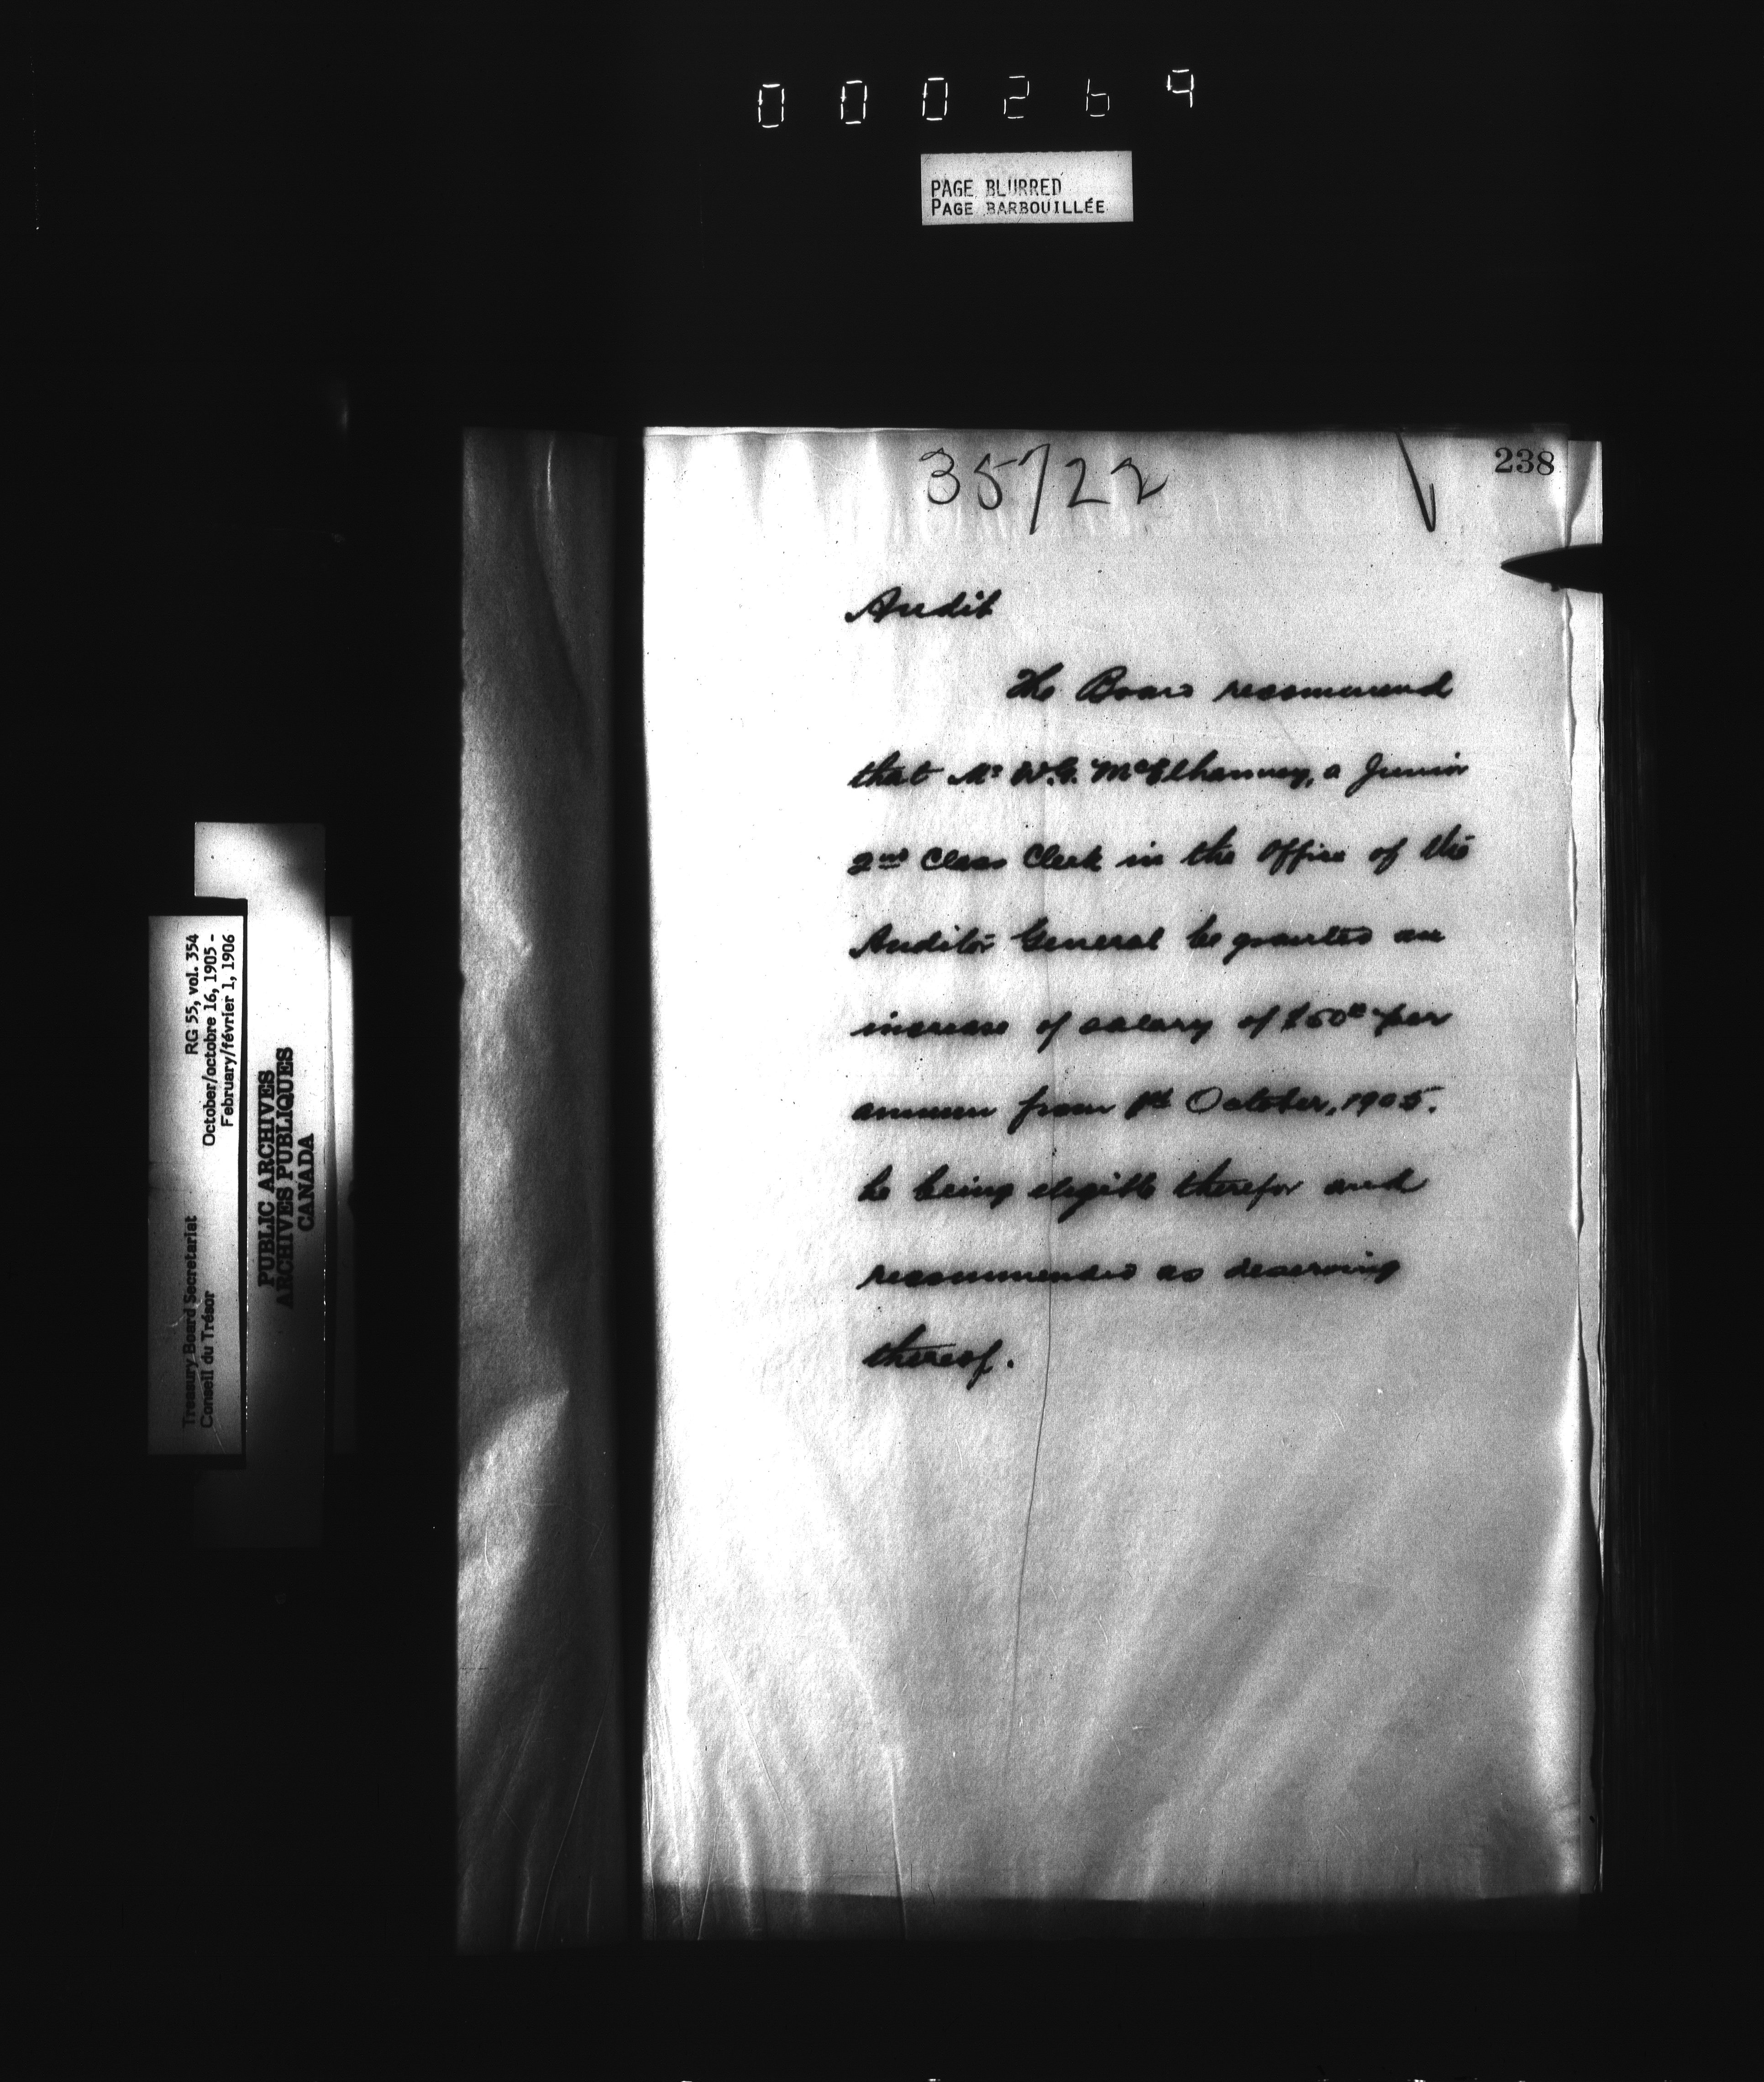 000269
PAGE BLURRED
PAGE BARBOUILLÉE
35722
238
Audit
The Board recommend
that Mr W.G. McElhanney, a Junior
2nd Class Clerk in the Office of the
Auditor General be granted an
increase of salary of $50⁰⁰ per
annum from 1st October, 1905.
he being eligible therefor and
recommended as deserving
thereof.
Treasury Board Secretariat RG 55, vol. 354
Conseil du Trésor October/octobre 16, 1905 -
February/février 1, 1906
PUBLIC ARCHIVES
ARCHIVES PUBLIQUES
CANADA